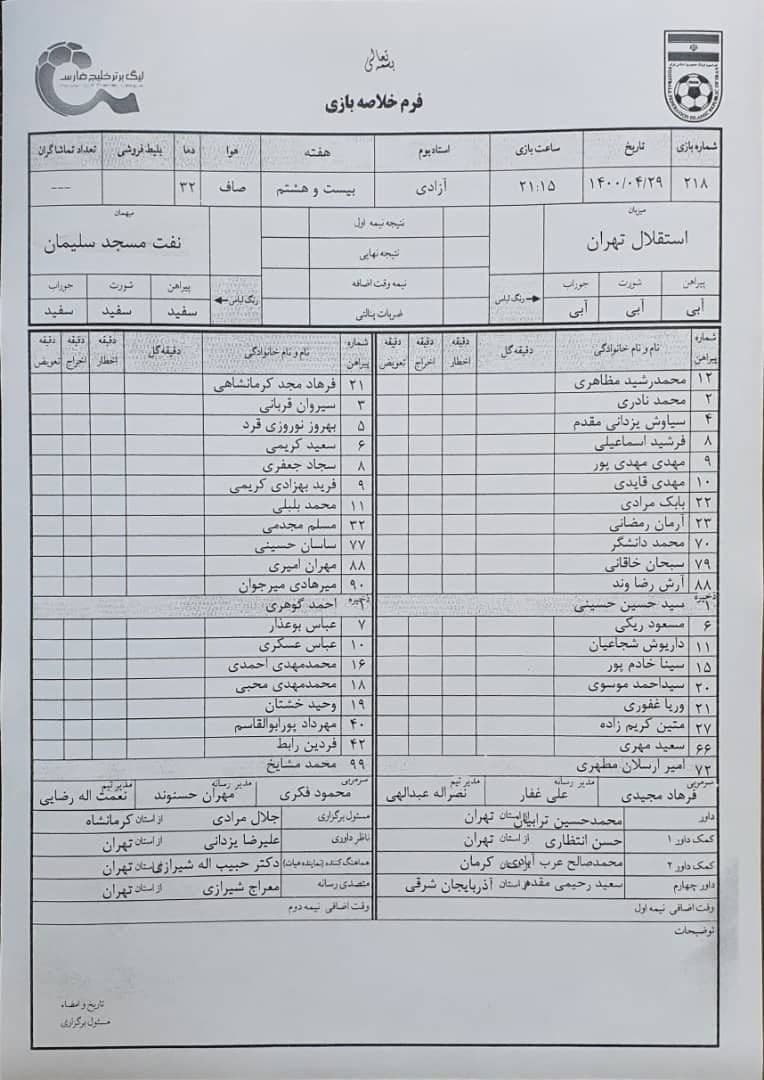 بسمه تعالی
لیگ برتر خلیج فارس
فرم خلاصه بازی
شماره بازی تاریخ ساعت بازی استادیوم هفته هوا دما بلیط فروشی تعداد تماشاگران
۲۱۸ ۱۴۰۰/۰۴/۲۹ ۲۱:۱۵ آزادی بیست و هشتم صاف ۳۲ ---
میزبان
استقلال تهران
پیراهن شورت جوراب
آبی آبی آبی
رنگ لباس
نتیجه نیمه اول
نتیجه نهایی
نیمه وقت اضافه
ضربات پنالتی
میهمان
نفت مسجد سلیمان
رنگ لباس
پیراهن شورت جوراب
سفید سفید سفید
شماره پیراهن نام و نام خانوادگی دقیقه گل دقیقه اخطار دقیقه اخراج دقیقه تعویض
۱۲ محمدرشید مظاهری
۲ محمد نادری
۴ سیاوش یزدانی مقدم
۸ فرشید اسماعیلی
۹ مهدی مهدی پور
۱۰ مهدی قایدی
۲۲ بابک مرادی
۲۳ آرمان رمضانی
۷۰ محمد دانشگر
۷۹ سبحان خاقانی
۸۸ آرش رضا وند
ذخیره
۱ سید حسین حسینی
۶ مسعود ریکی
۱۱ داریوش شجاعیان
۱۵ سینا خادم پور
۲۰ سیداحمد موسوی
۲۱ وریا غفوری
۲۷ متین کریم زاده
۶۶ سعید مهری
۷۲ امیر ارسلان مطهری
سرمربی فرهاد مجیدی مدیر رسانه علی غفار مدیر تیم نصراله عبدالهی
شماره پیراهن نام و نام خانوادگی دقیقه گل دقیقه اخطار دقیقه اخراج دقیقه تعویض
۲۱ فرهاد مجد کرمانشاهی
۳ سیروان قربانی
۵ بهروز نوروزی فرد
۶ سعید کریمی
۸ سجاد جعفری
۹ فرید بهزادی کریمی
۱۱ محمد بلبلی
۳۲ مسلم مجدمی
۷۷ ساسان حسینی
۸۸ مهران امیری
۹۰ میرهادی میرجوان
ذخیره
۱ احمد گوهری
۷ عباس بوعذار
۱۰ عباس عسکری
۱۶ محمدمهدی احمدی
۱۸ محمدمهدی محبی
۱۹ وحید خشتان
۴۰ مهرداد پورابوالقاسم
۴۲ فردین رابط
۹۹ محمد مشایخ
سرمربی محمود فکری مدیر رسانه مهران حسنوند مدیر تیم نعمت اله رضایی
داور محمدحسین ترابیان از استان تهران
کمک داور ۱ حسن انتظاری از استان تهران
کمک داور ۲ محمدصالح عرب آبادی از استان کرمان
داور چهارم سعید رحیمی مقدم از استان آذربایجان شرقی
وقت اضافی نیمه اول
مسئول برگزاری جلال مرادی از استان کرمانشاه
ناظر داوری علیرضا یزدانی از استان تهران
هماهنگ کننده (نماینده هیات) دکتر حبیب اله شیرازی از استان تهران
متصدی رسانه معراج شیرازی از استان تهران
وقت اضافی نیمه دوم
توضیحات
تاریخ و امضاء
مسئول برگزاری